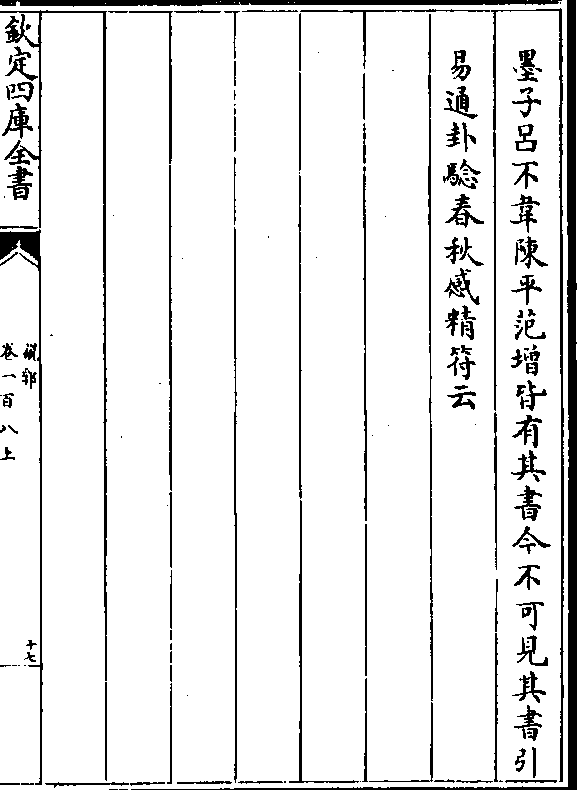 墨子呂不韋陳平范增皆有其書今不可見其書引
易通卦騐春秋感精符云
欽定四庫全書
說郛
卷一百八上
十七